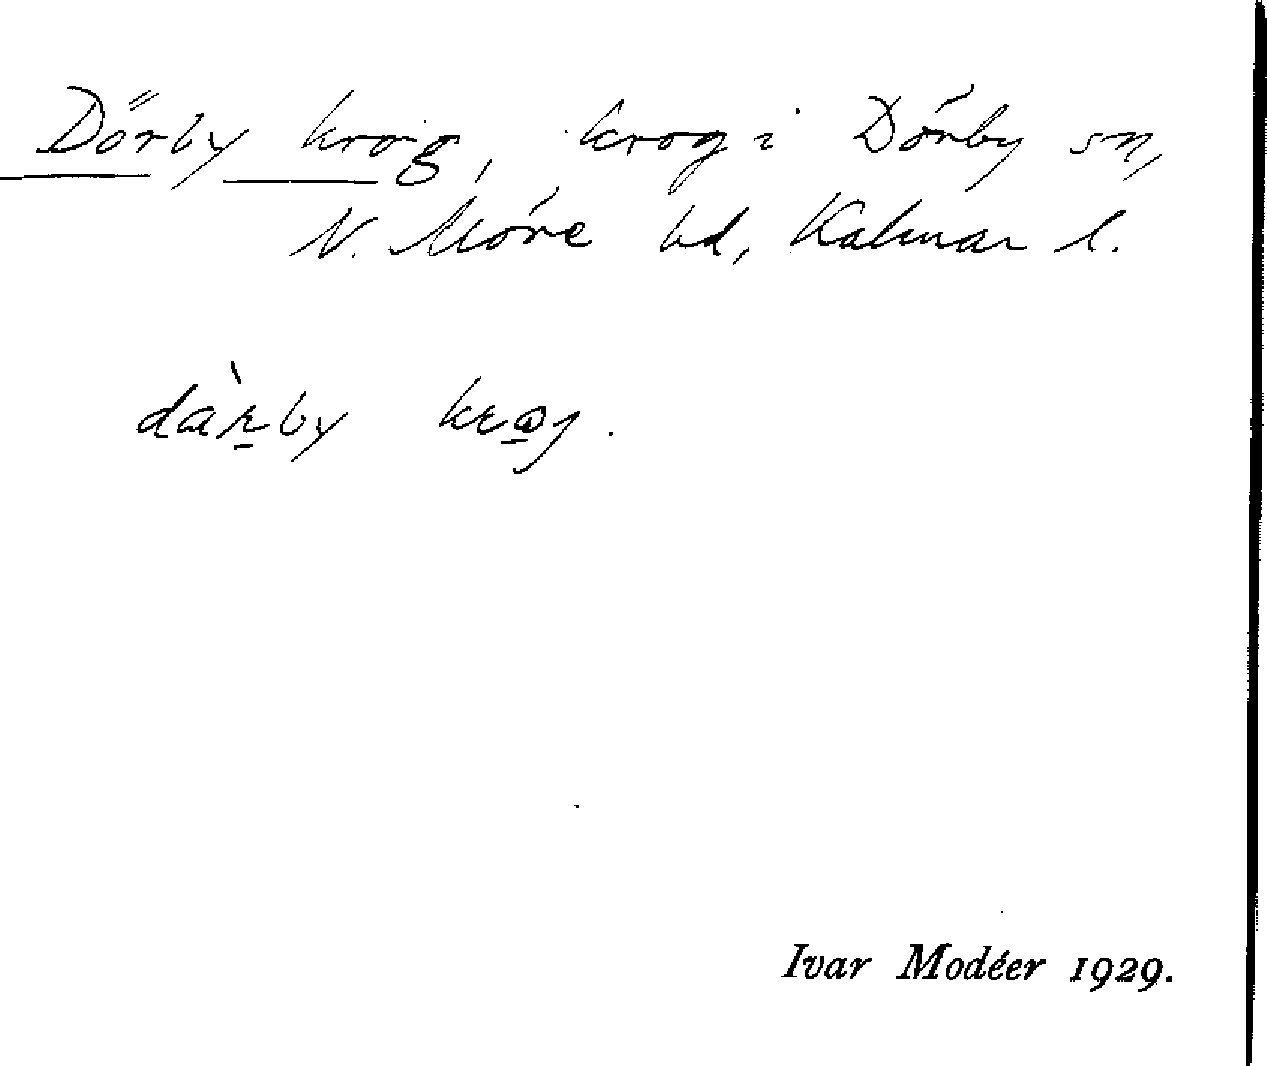 Dörby krog, krog i Dörby sn,
N. Möre hd, Kalmar l.
dàṟby
Ivar Modéer 1929.